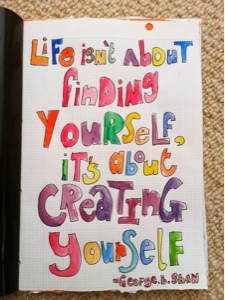 Life isn't about
finding
Yourself,
it's about
Creating
yourself
-George.b.Shaw